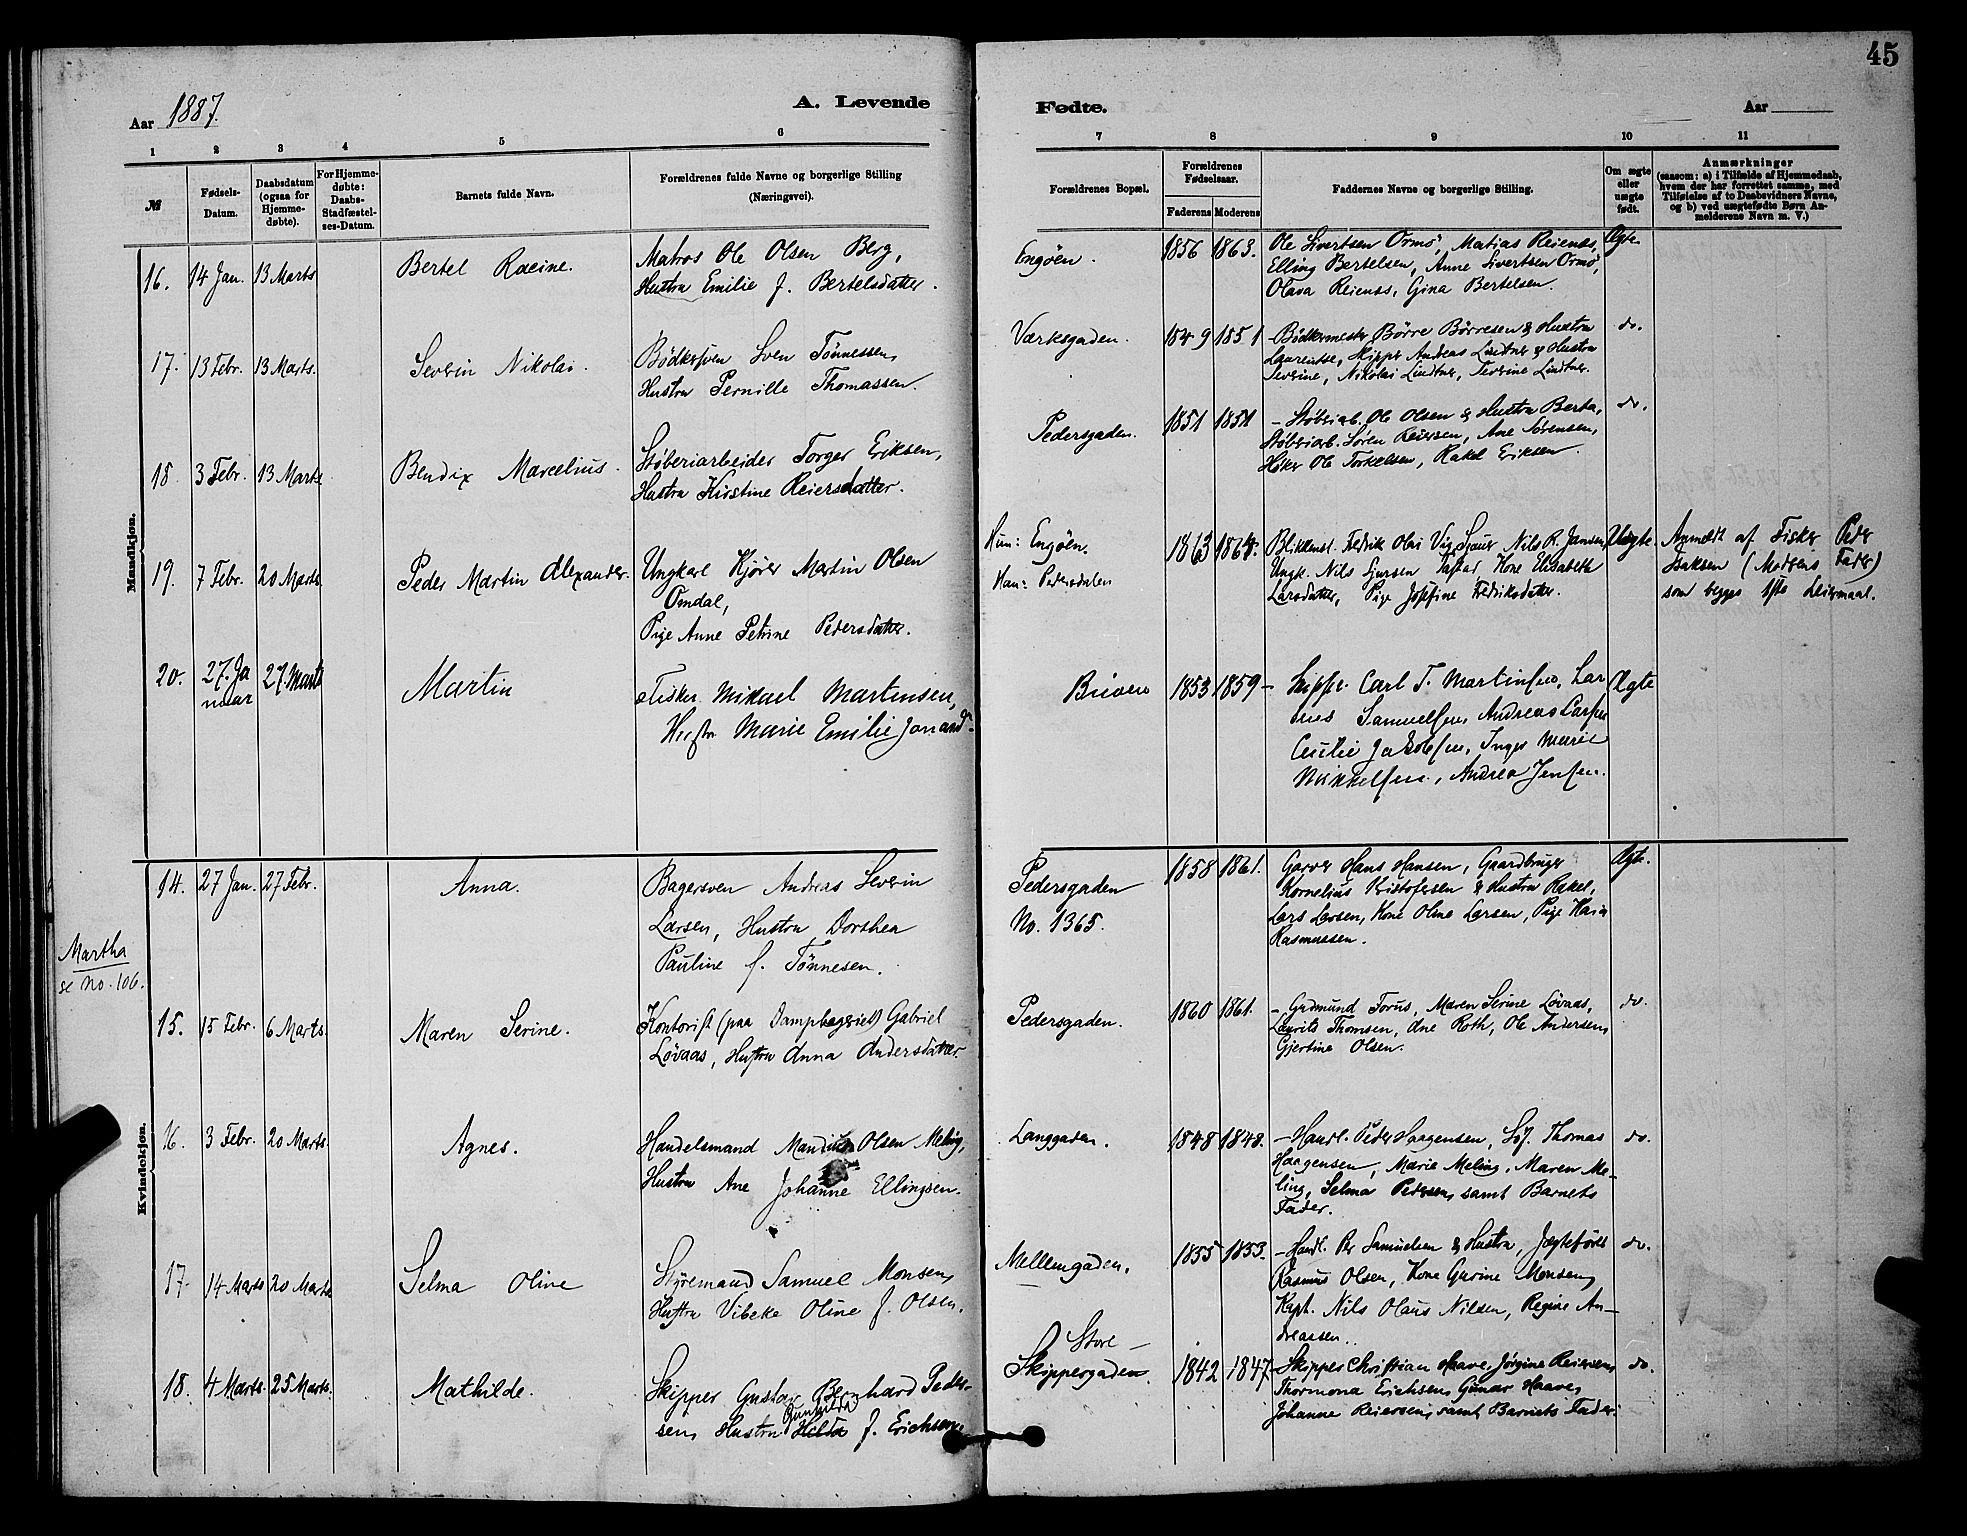 45
Aar 1887.
A. Levende
Fødte.
Aar
1 2 3 4 5 6 7 8 9 10 11
№
Fødsels-
Datum.
Daabsdatum
(ogsaa for
Hjemme-
døbte).
For Hjemme-
døbte:
Daabs-
Stadfæstel-
ses-Datum.
Barnets fulde Navn.
Forældrenes fulde Navne og borgerlige Stilling
(Næringsvei).
Forældrenes Bopæl.
Forældrenes
Fødselsaar.
Faderens Moderens
Faddernes Navne og borgerlige Stilling.
Om ægte
eller
uægte
født.
Anmærkninger
(saasom: a) i Tilfælde af Hjemmedaab,
hvem der har forrettet samme, med
Tilføielse af to Daabsvidners Navne,
og b) ved uægtefødte Børn An-
melderens Navn m. V.)
Mandkjøn.
16. 14 Jan. 13 Marts
Bertel Racine.
Matros Ole Olsen Berg,
Hustru Emilie f. Bertelsdatter.
Engöen.
1856 1863.
Ole Sivertsen Ormö, Matias Reienes,
Elling Bertelsen, Anne Sivertsen Ormö,
Olava Reienes, Gina Bertelsen.
Ægte.
17. 13 Febr. 13 Marts.
Severin Nikolai.
Bödkersven Sven Tönnessen,
Hustru Pernille Thomassen.
Værksgaden.
1849 1851
- Bödkermester Börre Börresen & Hustru
Laurentse, Skipper Andreas Lindtner & Hustru
Severine, Nikolai Lindtner, Severine Lindtner.
do.
18. 3 Febr. 13 Marts
Bendix Marcelius.
Støberiarbeider Torger Eriksen,
Hustru Kirstine Reiersdatter.
Pedersgaden.
1851 1851
- Støberiarb. Ole Olsen & Hustru Berta,
Støberiarb. Sören Reiersen, Ane Sörensen,
Høker Ole Torkelsen, Rakel Eriksen.
do.
19. 7 Febr. 20 Marts
Peder Martin Alexander.
Ungkarl Kjører Martin Olsen
Omdal,
Pige Anne Petrine Pedersdatter.
Hun: Engöen.
Han: Pedersdalen
1863 1864.
Blikkensl. Fredrik Olai Nils R. Jansen,
Ungk. Nils Sjursen Tastad, Kone Elisabeth
Larsdatter, Pige Josefine Fredriksdatter.
Uægte.
Anmeldt af Fisker Peder
Isaksen (Moderens Fader)
som begges 1ste Leiermaal.
20. 27. Ja
nuar
27. Marts
Martin
Fisker Mikael Martinsen,
Hustru Marie Emilie Jonasdr.
1853 1859
- Skipper Carl T. Martinsen, Lar
Samuelsen, Andreas
Cecilie Jakobsen, Inger Marie
Mikkelsen, Andrea Jensen.
Ægte
Kvindekjøn.
14. 27 Jan. 27 Febr.
Anna.
Bagersven Andreas Severin
Larsen, Hustru Dorthea
Pauline f. Tönnesen.
Pedersgaden
No. 1365.
1858 1861.
Garver Hans Hansen, Gaardbruger
Kornelius Kristofersen & Hustru Rakel,
Lars Larsen, Kone Oline Larsen, Pige
Rasmussen.
Ægte.
Martha
se no. 106.
15. 15 Febr. 6 Marts.
Maren Serine.
Kontorist (paa Dampbageriet) Gabriel
Lövaas, Hustru Anna Andersdatter
Pedersgaden.
1860 1861.
- Gudmund Forus, Maren Serine Lövaas,
Laurits Thomsen, Ane Roth, Ole Andersen,
Gjertine Olsen.
do.
16. 3 Febr. 20 Marts.
Agnes.
Handelsmand Mandius Olsen Meling,
Hustru Ane Johanne Ellingsen.
Langgaden.
1848 1848.
- Handl. Peder Haagensen, Thomas
Haagensen, Marie Meling, Maren Me-
ling, Selma Pedersen, samt Barnets
Fader.
do.
17. 14 Marts 20 Marts
Selma Oline
Styremand Samuel Monsen,
Hustru Vibeke Oline f. Olsen.
Mellemgaden.
1855 1853.
- Handl. Per Samuelsen & Hustru, Jægtefører
Rasmus Olsen, Kone Gurine Monsen,
Kapt. Nils Olaus Nilsen, Regine An-
dreassen.
do.
18. 4 Marts. 25 Marts.
Mathilde.
Skipper Gustav Bernhard Peder-
Gunhilda
sen, Hustru Hilda f. Erichsen.
Store-
Skippergaden.
1842 1847
- Skipper Christian Haave, Jörgine Reiersen,
Thormona Erichsen, Gunar Haave,
Johanne Reiersen, samt Barnets Fader.
do.